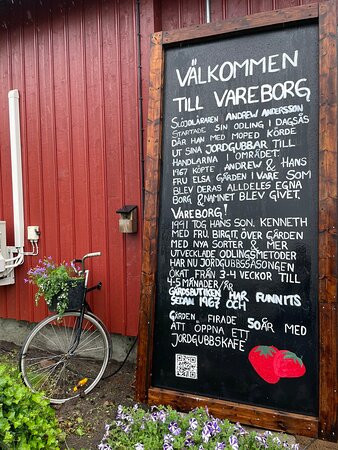 VÄLKOMMEN
TILL VAREBORG
SLÖJDLÄRAREN ANDREW ANDERSSON
STARTADE SIN ODLING I DAGSÅS
DÄR HAN MED MOPED KÖRDE
UT SINA JORDGUBBAR TILL
HANDLARNA I OMRÅDET.
1967 KÖPTE ANDREW & HANS
FRU ELSA GÅRDEN I VARE SOM
BLEV DERAS ALLDELES EGNA
BORG & NAMNET BLEV GIVET,
VAREBORG!
1991 TOG HANS SON, KENNETH
MED FRU, BIRGIT, ÖVER GÅRDEN
MED NYA SORTER & MER
UTVECKLADE ODLINGSMETODER
HAR NU JORDGUBBSSÄSONGEN
ÖKAT FRÅN 3-4 VECKOR TILL
4-5 MÅNADER/ÅR
GÅRDSBUTIKEN HAR FUNNITS
SEDAN 1967 OCH
GÅRDEN FIRADE 50ÅR MED
ATT ÖPPNA ETT
JORDGUBBSKAFÉ